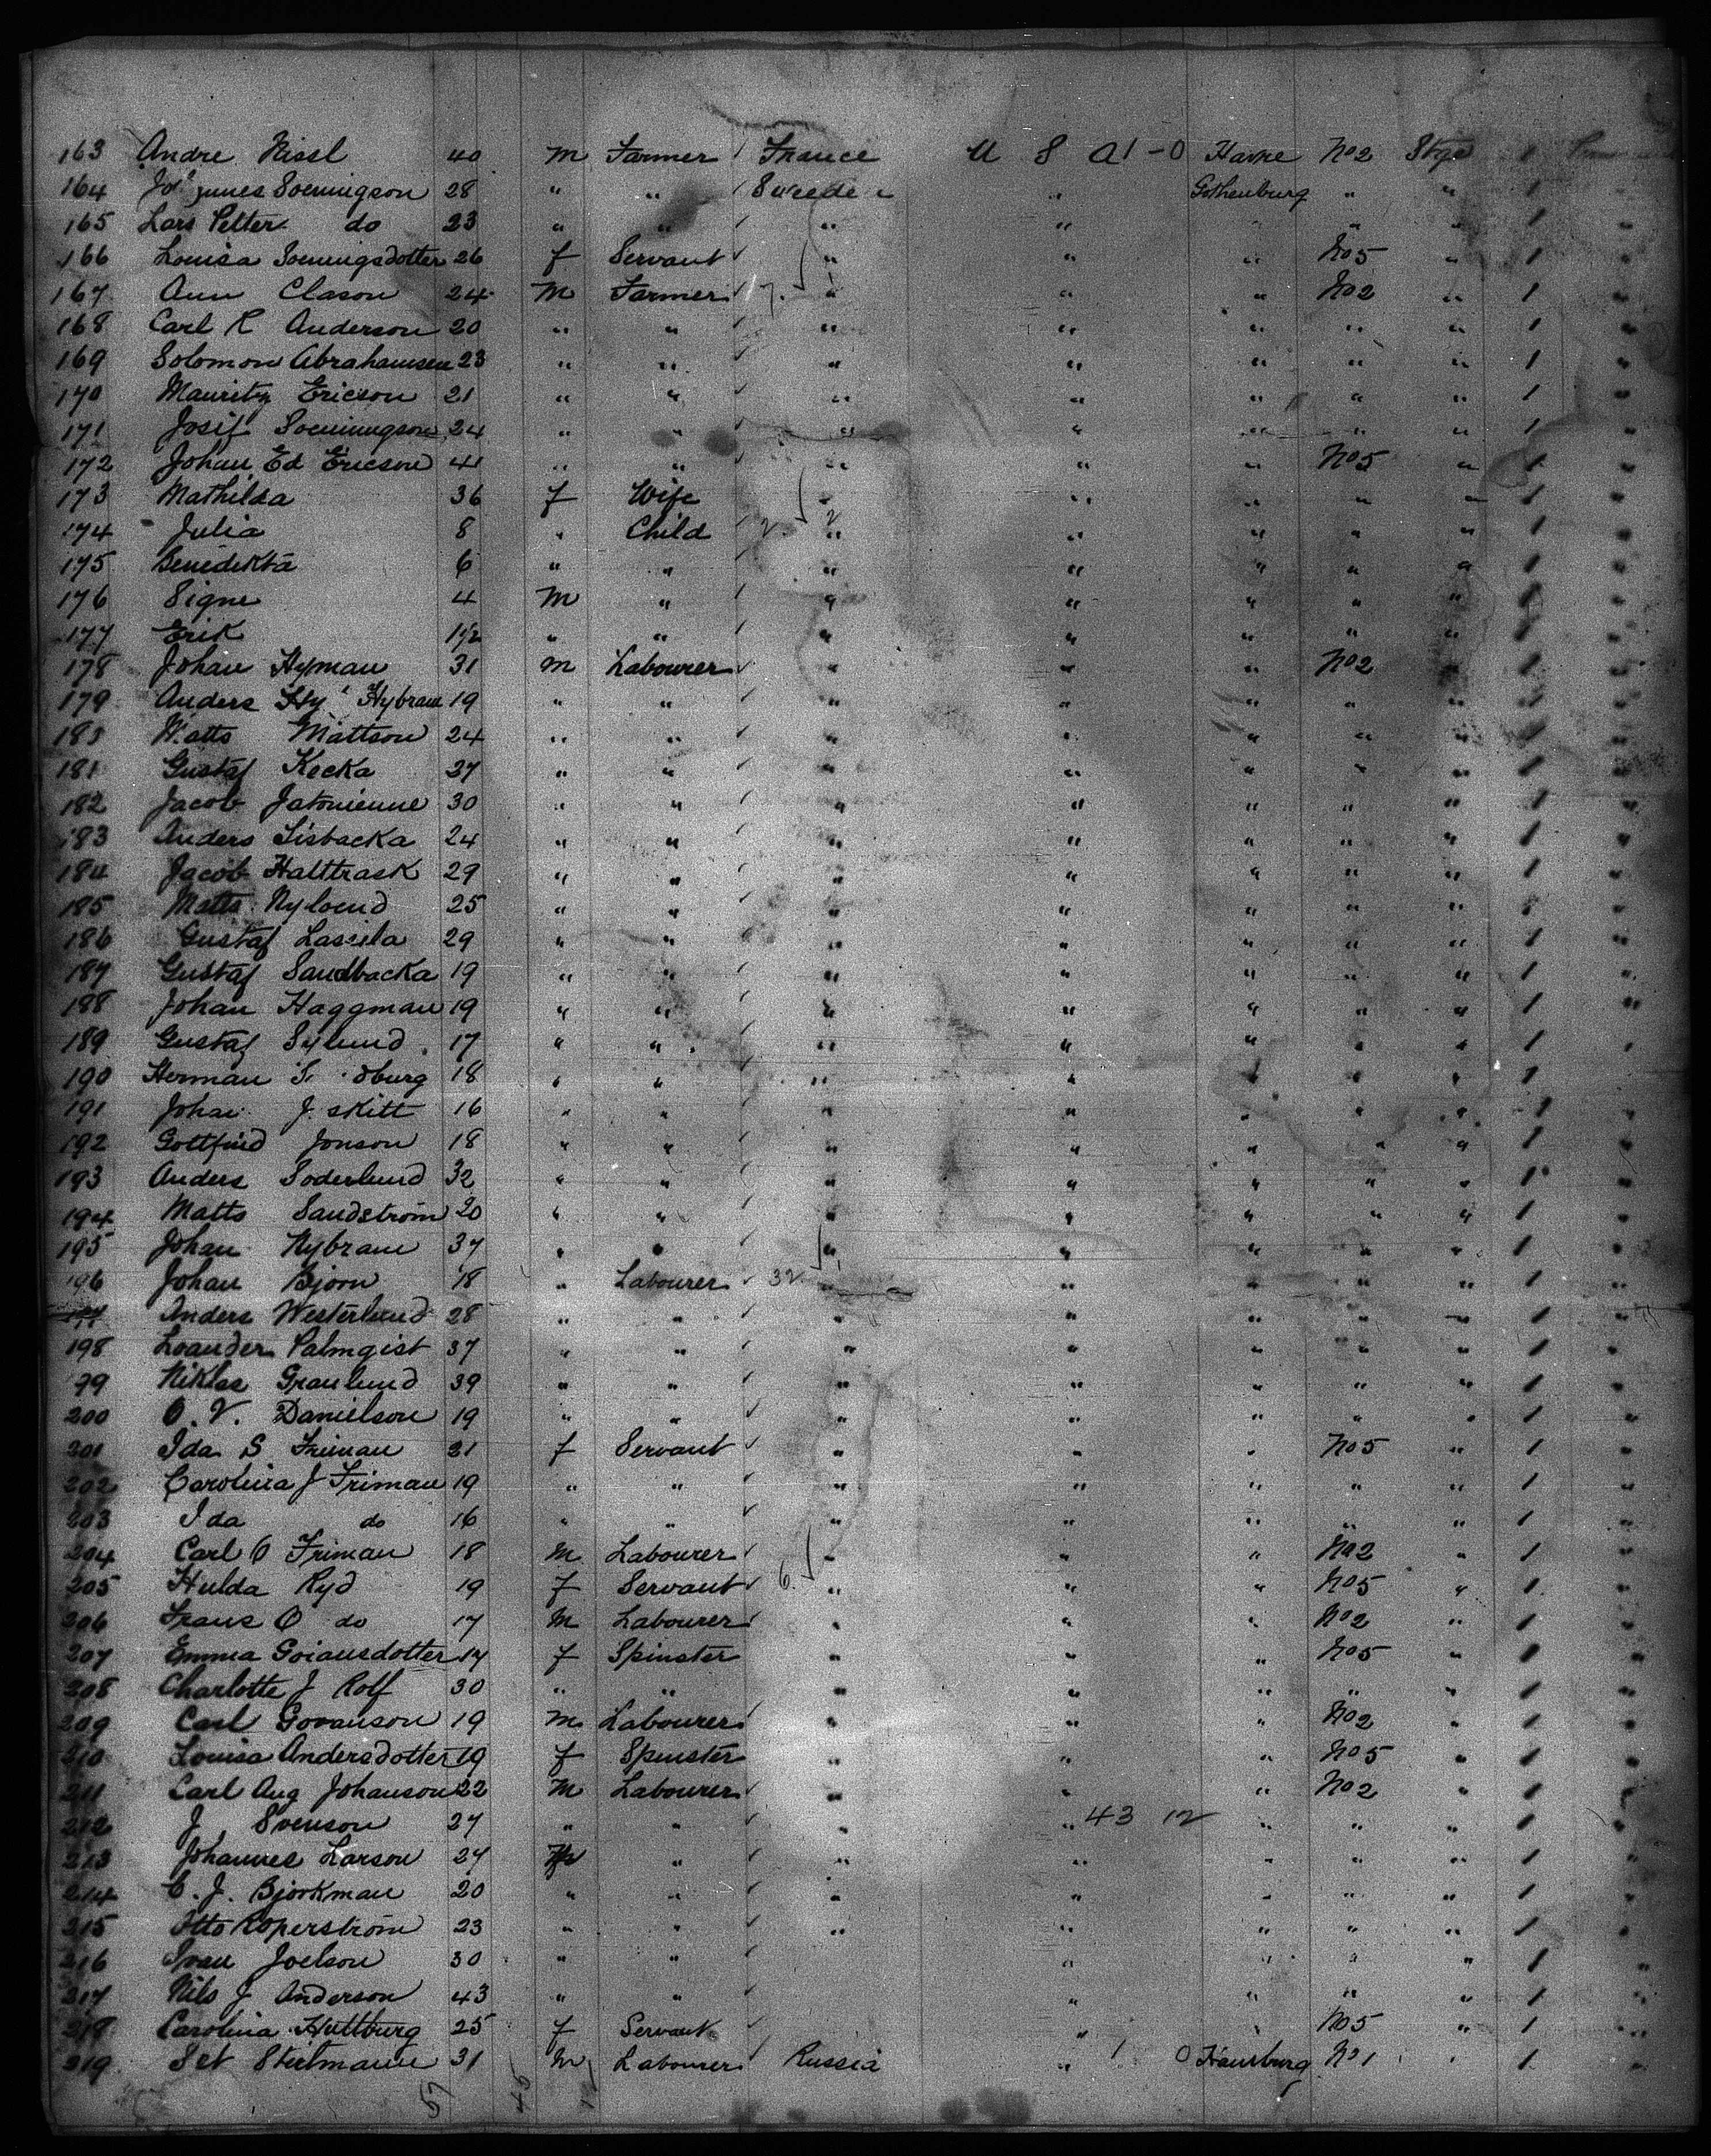 163 Andre Nissl 40 M Farmer France U S A 1 - 0 Havre No 2 Stge 1
164 Soenningson 28 " " Sweden " Gothenburg " " 1
165 Lars Petter do 23 " " " " " " 1
166 Louisa Soenningsdotter 26 f Servant " " " No 5 " 1
167 Ann Clason 24 M Farmer 7 " " " No 2 " 1
168 Carl R Anderson 20 " " " " " " " 1 "
169 Solomon Abrahamsen 23 " " " " " " " 1 "
170 Mauritz Ericson 21 " " " " " " " 1 "
171 Josif Soenningson 24 " " " " " " " 1 "
172 Johan Ed Ericson 41 " " " " " No 5 " 1 "
173 Mathilda 36 f Wife " " " " " 1 "
174 Julia 8 " Child 2 " " " " " 1 "
175 Benedikta 6 " " " " " " " 1 "
176 Signe 4 M " " " " " " 1 "
177 Erik 1 1/2 " " " " " " " 1 "
178 Johan Hyman 31 m Labourer " " " No 2 " 1 "
179 Anders Hy Nybram 19 " " " " " " " 1 "
183 Matts Mattson 24 " " " " " " " 1 "
181 Gustaf Kecka 27 " " " " " " " 1 "
182 Jacob Jatonienne 30 " " " " " " " 1 "
183 Anders Lisbacka 24 " " " " " " " 1 "
184 Jacob Halttrask 29 " " " " " " " 1 "
185 Matts Nylund 25 " " " " " " " 1 "
186 Gustaf Lassila 29 " " " " " " " 1 "
187 Gustaf Sandbacka 19 " " " " " " " 1 "
188 Johan Haggman 19 " " " " " " " 1 "
189 Gustaf Sylund 17 " " " " " " " 1 "
190 Herman 18 " " " " " " " 1 "
191 Johan 16 " " " " " " " 1 "
192 Gottfrid Jonson 18 " " " " " " " 1 "
193 Anders Soderlund 32 " " " " " " " 1 "
194 Matts Sandstrom 20 " " " " " " " 1 "
195 Johan Nybram 37 " " " " " " " 1 "
196 Johan Bjorn 18 " Labourer 32 " " " " " 1 "
Anders Westerlund 28 " " " " " " " 1 "
198 Leander Palmgist 37 " " " " " " " 1 "
99 Niklas Granlund 39 " " " " " " " 1 "
200 O. V. Danielson 19 " " " " " " " 1 "
201 Ida S Friman 21 f Servant " " " No 5 " 1 "
202 Carolina J Friman 19 " " " " " " " 1 "
203 Ida do 16 " " " " " " " 1 "
204 Carl O Friman 18 M Labourer " " " No 2 " 1 "
205 Hulda Ryd 19 f Servant 6 " " " No 5 " 1 "
206 Frans O do 17 M Labourer " " " No 2 " 1 "
207 Emma Goiansdotter 17 f Spinster " " " No 5 " 1 "
208 Charlotte J Rolf 30 " " " " " " " 1 "
209 Carl Govanson 19 M Labourer " " " No 2 " 1 "
210 Louisa Andersdotter 19 f Spinster " " " No 5 " 1 "
211 Carl Aug Johanson 22 M Labourer " " " No 2 " 1 "
212 J Svenson 27 " " " " 43 12 " " " 1 "
213 Johannes Larson 27 M " " " " " " 1 "
214 C. J. Bjorkman 20 " " " " " " " 1 "
215 Otto Koperstrom 23 " " " " " " " 1 "
216 Joelson 30 " " " " " " 1 "
217 Nils J Anderson 43 " " " " " " 1 "
218 Carolina Hultburg 25 f Servant " " No 5 " 1 "
219 31 M Labourer Russia " 1 0 Hamburg No 1 " 1 "
57 45 12